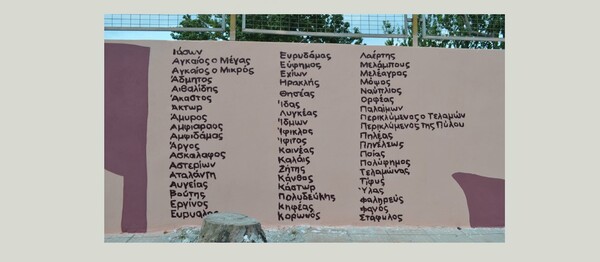 Ιάσων
Αγκαίος ο Μέγας
Αγκαίος ο Μικρός
Άδμητος
Αιθαλίδης
Άκαστος
Άκτωρ
Άμυρος
Αμφιαραος
Αμφιδάμας
Άργος
Ασκαλαφος
Αστερίων
Αταλάντη
Αυγείας
Βούτης
Εργίνος
Ευρυαλος
Ευρυδάμας
Εύφημος
Εχίων
Ηρακλής
Θησέας
Ίδας
Λυγκέας
Ίδμων
Ίφικλος
Ίφιτος
Καινέας
Καλάις
Ζήτης
Κάνθος
Κάστωρ
Πολυδεύκης
Κηφέας
Κορωνος
Λαέρτης
Μελάμπους
Μελέαγρος
Μόψος
Ναύπλιος
Ορφέας
Παλαίμων
Περικλύμενος ο Τελαμών
Περικλύμενος της Πύλου
Πηλέας
Πηνέλεως
Ποίας
Πολύφημος
Τελαμώνας
Τίφυς
Ύλας
Φαληρεύς
Φανός
Στάφυλος